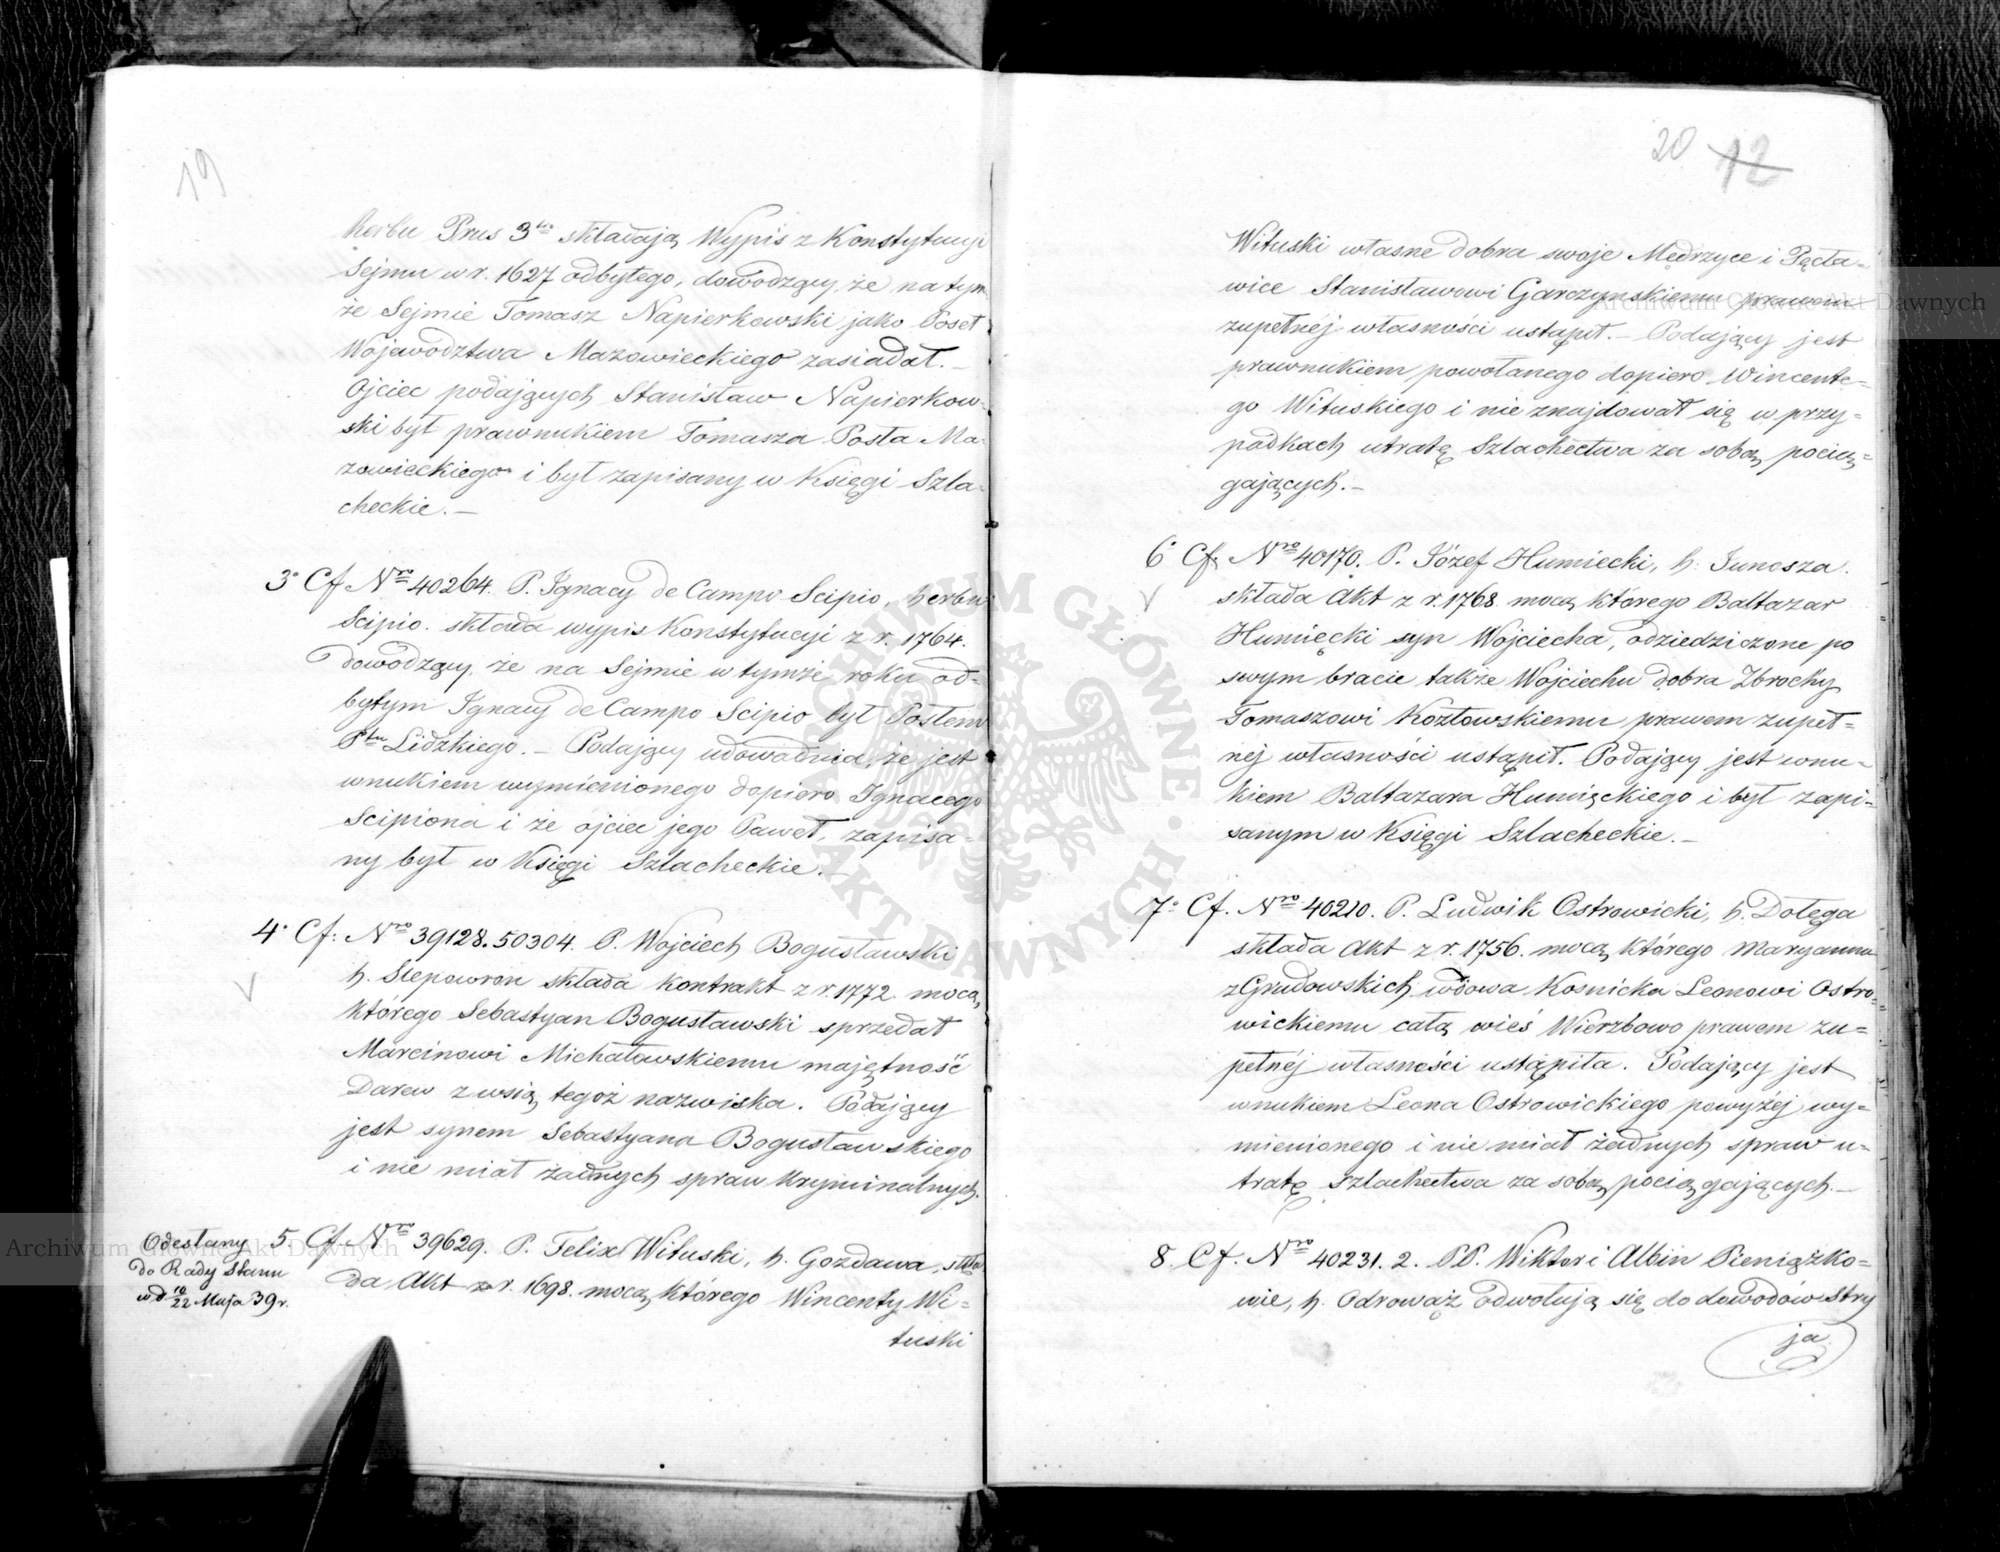 19
herbu Prus 3tio składają Wypis z Konstytucyi
Sejmu w r. 1627 odbytego, dowodzący, że na tym-
że Sejmie Tomasz Napierkowski jako Poseł
Województwa Mazowieckiego zasiadał. –
Ojciec podających Stanisław Napierkow-
ski był prawnukiem Tomasza Posła Ma-
zowieckiego i był zapisany w Księgi Szla-
checkie. –
3° Cf. Nro 40264. P. Ignacy de Campo Scipio, herbu
Scipio. składa wypis Konstytucyi z r. 1764.
dowodzący, że na Sejmie w tymże roku od-
bytym Ignacy de Campo Scipio był Posłem
Ptu Lidzkiego. – Podający udowadnia, że jest
wnukiem wymienionego dopiero Ignacego
Scipiona i że ojciec jego Paweł, zapisa-
ny był w Księgi Szlacheckie. –
4° Cf: Nro 39128.50304. P. Wojciech Bogusławski
h. Slepowron składa kontrakt z r. 1772 mocą
którego Sebastyan Bogusławski sprzedał
Marcinowi Michałowskiemu majętność
Darew z wsią tegoż nazwiska. Podający
jest synem Sebastyana Bogusławskiego
i nie miał żadnych spraw kryminalnych.
Odesłany
do Rady Stanu
w d. 10/22 Maja 39 r.
5 Cf. Nro 39629. P. Felix Wituski, h. Gozdawa, skła
da Akt z r. 1698. mocą którego Wincenty Wi=
tuski
20 12
Wituski własne dobra swoje Mędrzyce i Pęcła=
wice Stanisławowi Garczynskiemu prawem
zupełnéj własności ustąpił. – Podający jest
prawnukiem powołanego dopiero Wincente=
go Wituskiego i nie znajdował się w przy=
padkach utratę Szlachectwa za sobą pocią=
gających. –
6° Cf. Nro 40170. P. Józef Humiecki, h. Junosza.
składa Akt z r. 1768. mocą którego Baltazar
Humięcki syn Wojciecha, odziedziczone po
swym bracie także Wojciechu dobra Zbrochy
Tomaszowi Kozłowskiemu prawem zupeł=
nej własności ustąpił. Podający jest wnu-
kiem Baltazara Humięckiego i był zapi-
sanym w Księgi Szlacheckie. –
7° Cf. Nro 40210. P. Ludwik Ostrowicki, h. Dołęga
składa Akt z r. 1756. mocą którego Maryanna
z Grudowskich wdowa Kosnicka Leonowi Ostro=
wickiemu całą wieś Wierzbowo prawem zu=
pełnéj własności ustąpiła. Podający jest
wnukiem Leona Ostrowickiego powyżej wy=
mienionego i nie miał żadnych spraw u=
tratę szlachectwa za sobą pociągających. –
8. Cf. Nro 40231. 2. PP. Wiktor i Albin Pieniążko=
wie, h. Odrowąż odwołują się do dowodów stry
ja
Archiwum Główne Akt Dawnych
Archiwum Główne Akt Dawnych
ARCHIWUM GŁÓWNE • AKT DAWNYCH •